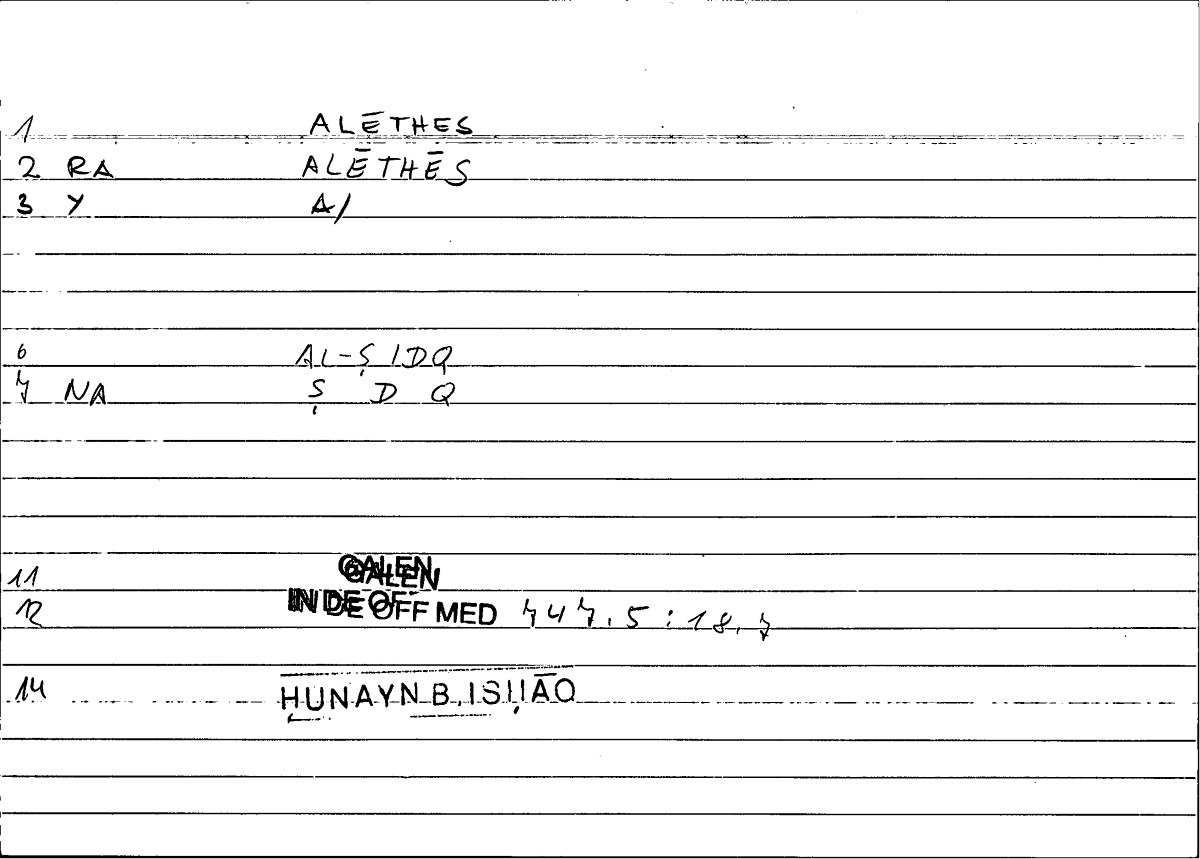 1 ALĒTHES
2 RA ALĒTHĒS
3 Y A/
6 AL-ṢIDQ
7 NA Ṣ D Q
11 GALEN
12 IN DE OFF MED 747.5:18.7
14 ḤUNAYN B. ISḤĀQ